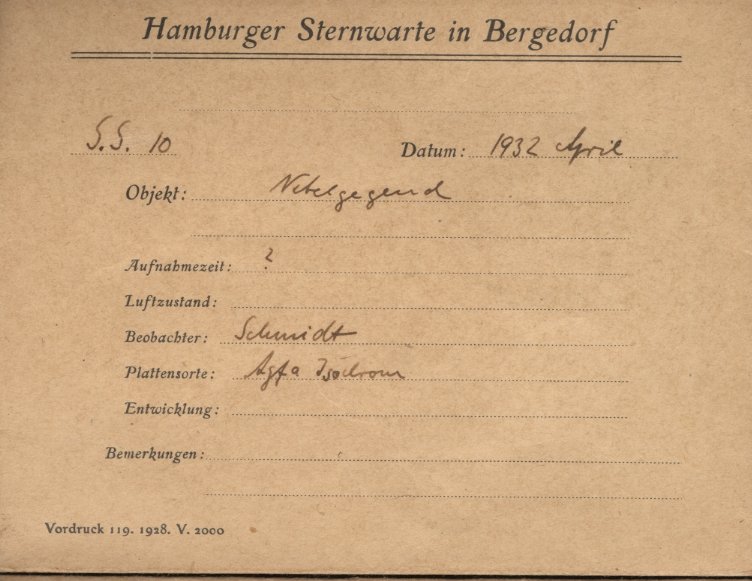 Hamburger Sternwarte in Bergedorf
S.S. 10 Datum: 1932 April
Objekt: Nebelgegend
Aufnahmezeit: ?
Luftzustand:
Beobachter: Schmidt
Plattensorte: Agfa Isochrom
Entwicklung:
Bemerkungen:
Vordruck 119. 1928. V. 2000